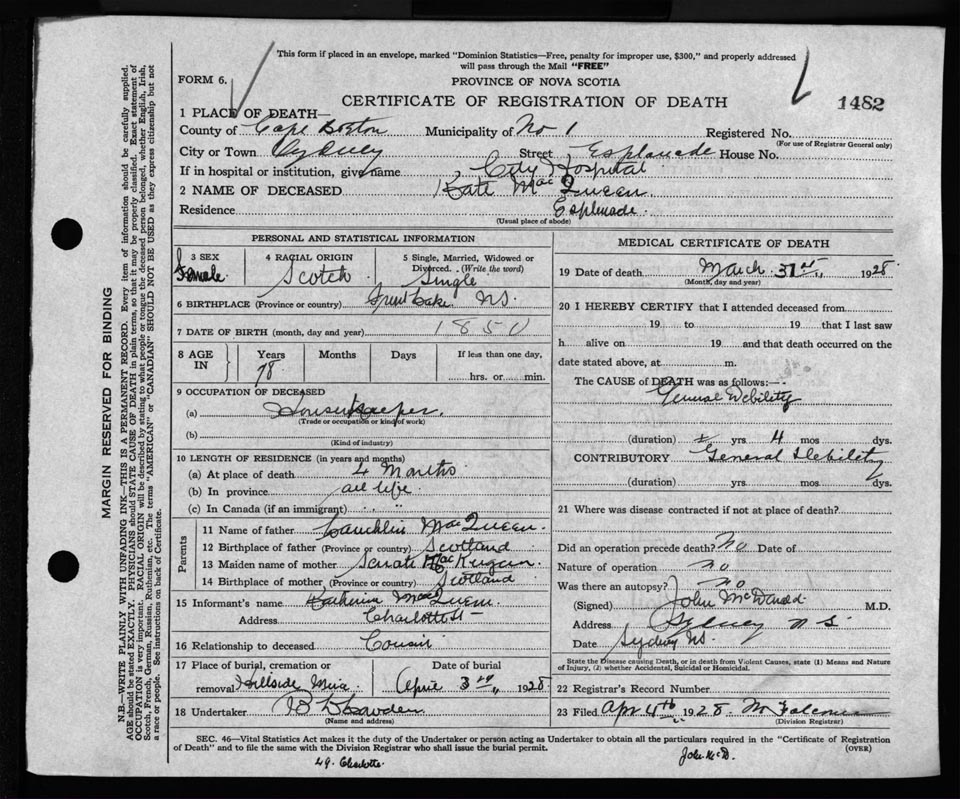 This form if placed in an envelope, marked "Dominion Statistics—Free, penalty for improper use, $300," and properly addressed
will pass through the Mail "FREE"
FORM 6.
PROVINCE OF NOVA SCOTIA
CERTIFICATE OF REGISTRATION OF DEATH
1482
1 PLACE OF DEATH—
County of Cape Breton Municipality of No 1 Registered No.
(For use of Registrar General only)
City or Town Sydney Street Esplanade House No.
If in hospital or institution, give name City Hospital
2 NAME OF DECEASED Kate MacQueen
Residence Esplanade.
(Usual place of abode)
PERSONAL AND STATISTICAL INFORMATION
3 SEX Female
4 RACIAL ORIGIN Scotch
5 Single, Married, Widowed or Divorced. (Write the word) Single
6 BIRTHPLACE (Province or country) N.S.
7 DATE OF BIRTH (month, day and year) 1850
8 AGE IN Years Months Days If less than one day,
78 hrs. or min.
9 OCCUPATION OF DECEASED
(a) Housekeeper.
(Trade or occupation or kind of work)
(b)
(Kind of industry)
10 LENGTH OF RESIDENCE (in years and months)
(a) At place of death 4 Months
(b) In province all life
(c) In Canada (if an immigrant) " "
Parents
11 Name of father Lauchlin MacQueen.
12 Birthplace of father (Province or country) Scotland
13 Maiden name of mother Mac
14 Birthplace of mother (Province or country) Scotland
15 Informant's name Katherine MacQueen
Address Charlotte St
16 Relationship to deceased Cousin
17 Place of burial, cremation or removal Hillside Mira
Date of burial April 3rd, 1928
18 Undertaker
(Name and address)
MEDICAL CERTIFICATE OF DEATH
19 Date of death March 31st, 1928
(Month, day and year)
20 I HEREBY CERTIFY that I attended deceased from
19 to 19 that I last saw
h alive on 19 and that death occurred on the
date stated above, at m.
The CAUSE of DEATH was as follows:—
General Debility
(duration) yrs 4 mos dys.
CONTRIBUTORY General Debility
(duration) yrs. mos. dys.
21 Where was disease contracted if not at place of death?
Did an operation precede death? No Date of
Nature of operation no
Was there an autopsy? no
(Signed) John McDonald M.D.
Address Sydney N S
Date Sydney NS.
State the Disease causing Death, or in death from Violent Causes, state (1) Means and Nature
of Injury, (2) whether Accidental, Suicidal or Homicidal.
22 Registrar's Record Number
23 Filed Apr 4th, 1928
(Division Registrar)
SEC. 46—Vital Statistics Act makes it the duty of the Undertaker or person acting as Undertaker to obtain all the particulars required in the "Certificate of Registration
of Death" and to file the same with the Division Registrar who shall issue the burial permit. (OVER)
49. Charlotte.
John McD.
MARGIN RESERVED FOR BINDING
N.B.—WRITE PLAINLY WITH UNFADING INK—THIS IS A PERMANENT RECORD. Every item of information should be carefully supplied.
AGE should be stated EXACTLY. PHYSICIANS should STATE CAUSE OF DEATH in plain terms, so that it may be properly classified. Exact statement of
OCCUPATION is very important. RACIAL ORIGIN will be described by stating to what people or tongue the deceased person belonged, whether English, Irish,
Scotch, French, German, Russian, Ruthenian, etc. The terms "AMERICAN" or "CANADIAN" SHOULD NOT BE USED as they express citizenship but not
a race or people. See instructions on back of Certificate.